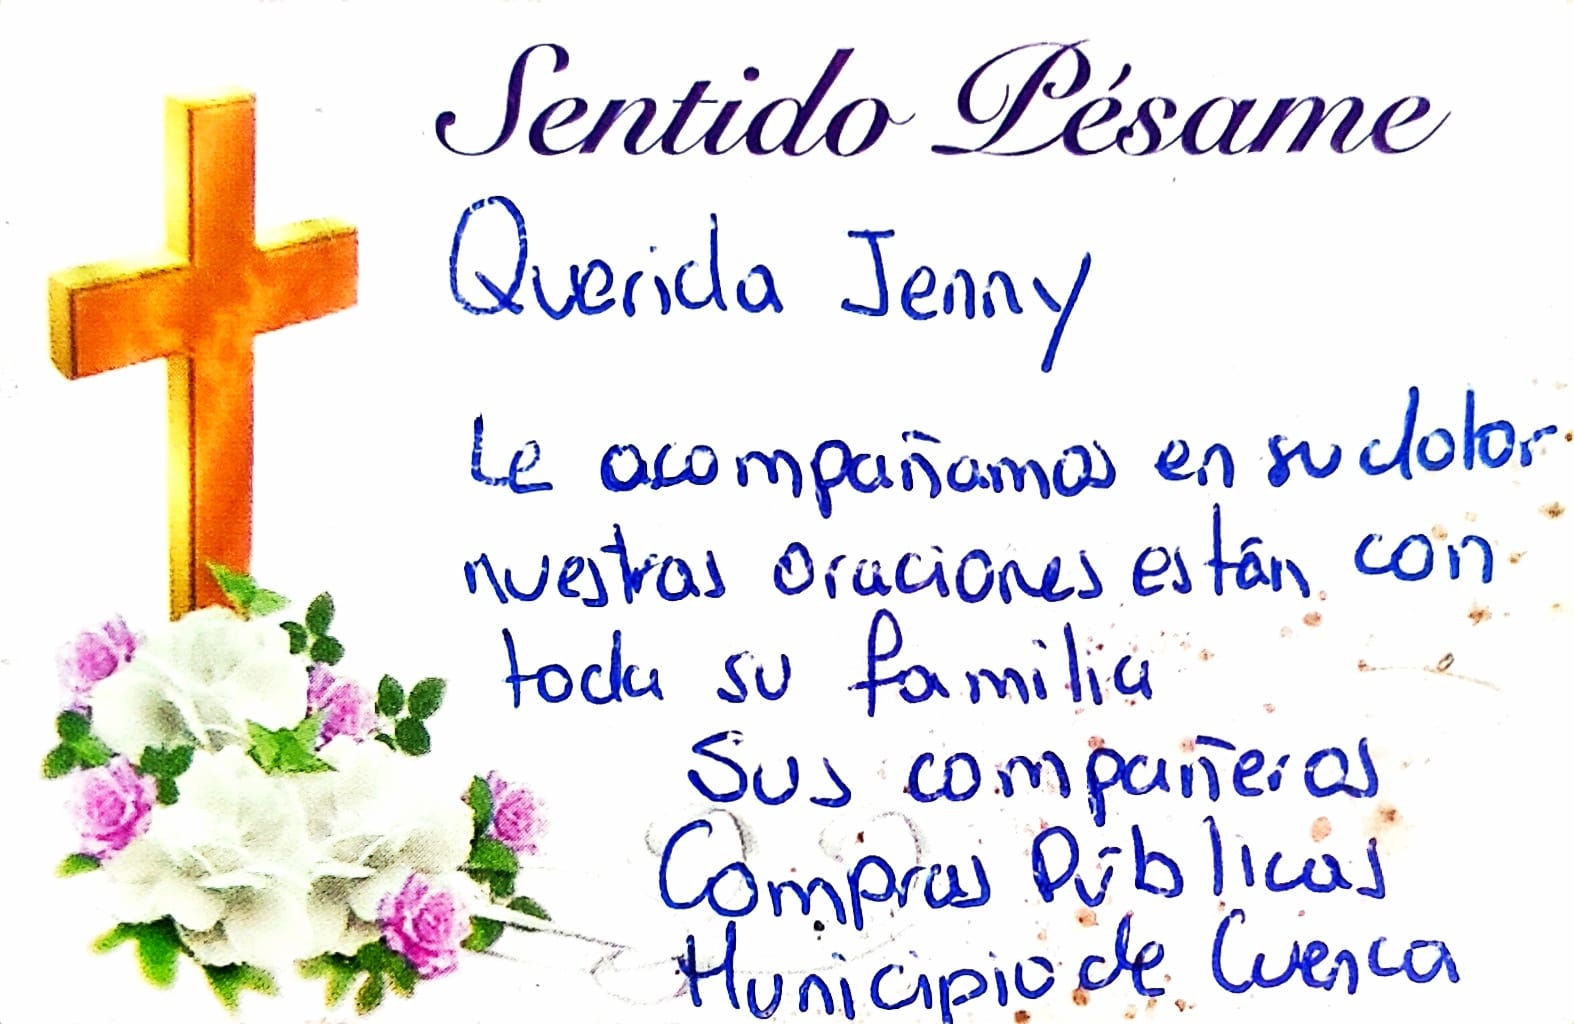 Sentido Pésame
Querida Jenny
Le acompañamos en su dolor
nuestras oraciones están con
toda su familia
Sus compañeros
Compras Públicas
Municipio de Cuenca